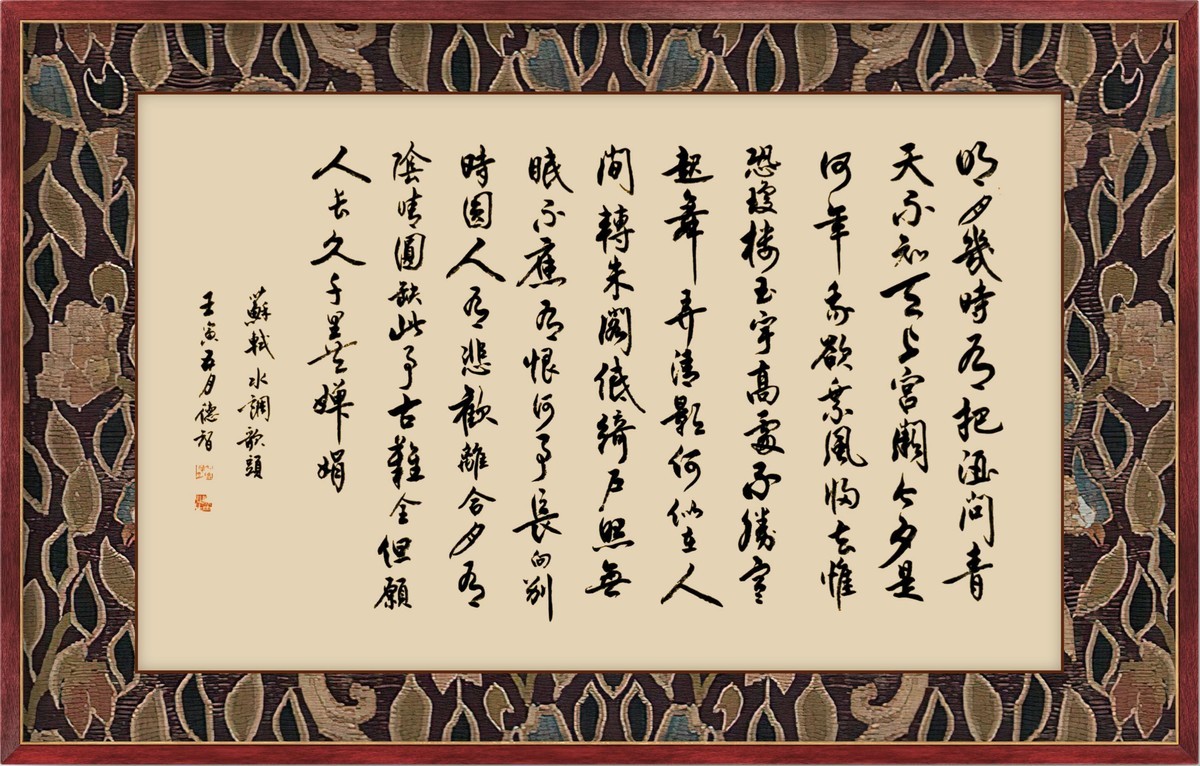 明月幾時有把酒問青
天不知天上宮闕今夕是
何年我欲乘風歸去惟
恐瓊樓玉宇高處不勝寒
起舞弄清影何似在人
間轉朱閣低綺戶照無
眠不應有恨何事長向別
時圓人有悲歡離合月有
陰晴圓缺此事古難全但願
人長久千里共嬋娟
蘇軾水調歌頭
壬寅五月德智